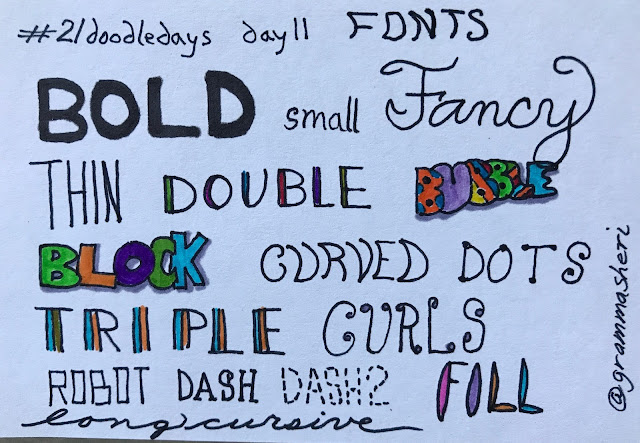 #21doodledays day 11 FONTS
BOLD small Fancy
THIN DOUBLE BUBBLE
BLOCK CURVED DOTS
TRIPLE CURLS
ROBOT DASH DASH2 FILL
long cursive
@grammasheri